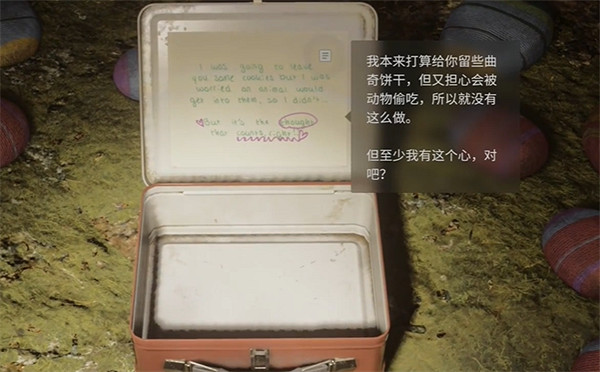 I was going to leave
you some cookies but I was
worried an animal would
get into them, so I didn't...
But it's the thought
that counts, right?
我本来打算给你留些曲
奇饼干，但又担心会被
动物偷吃，所以就没有
这么做。
但至少我有这个心，对
吧？